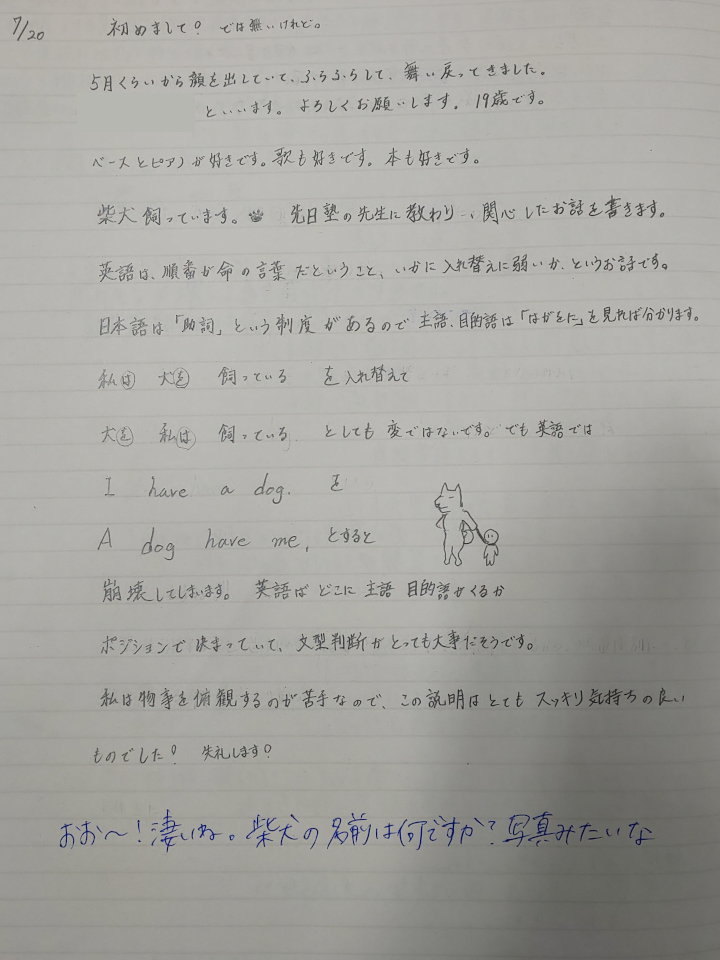 7/20 初めまして？ では無いけれど。
5月くらいから顔を出していて、ふらふらして、舞い戻ってきました。
といいます。よろしくお願いします。19歳です。
ベースとピアノが好きです。歌も好きです。本も好きです。
柴犬飼っています。 先日塾の先生に教わり、関心したお話を書きます。
英語は、順番が命の言葉だということ、いかに入れ替えに弱いか、というお話です。
日本語は「助詞」という制度があるので主語、目的語は「はがをに」を見れば分かります。
私は 犬を 飼っている を入れ替えて
犬を 私は 飼っている としても変ではないです。でも英語では
I have a dog. を
A dog have me, とすると
崩壊してしまいます。 英語はどこに主語 目的語がくるか
ポジションで決まっていて、文型判断がとっても大事だそうです。
私は物事を俯観するのが苦手なので、この説明はとてもスッキリ気持ちの良い
ものでした？ 失礼します？
おお〜！凄いね。柴犬の名前は何ですか？写真みたいな